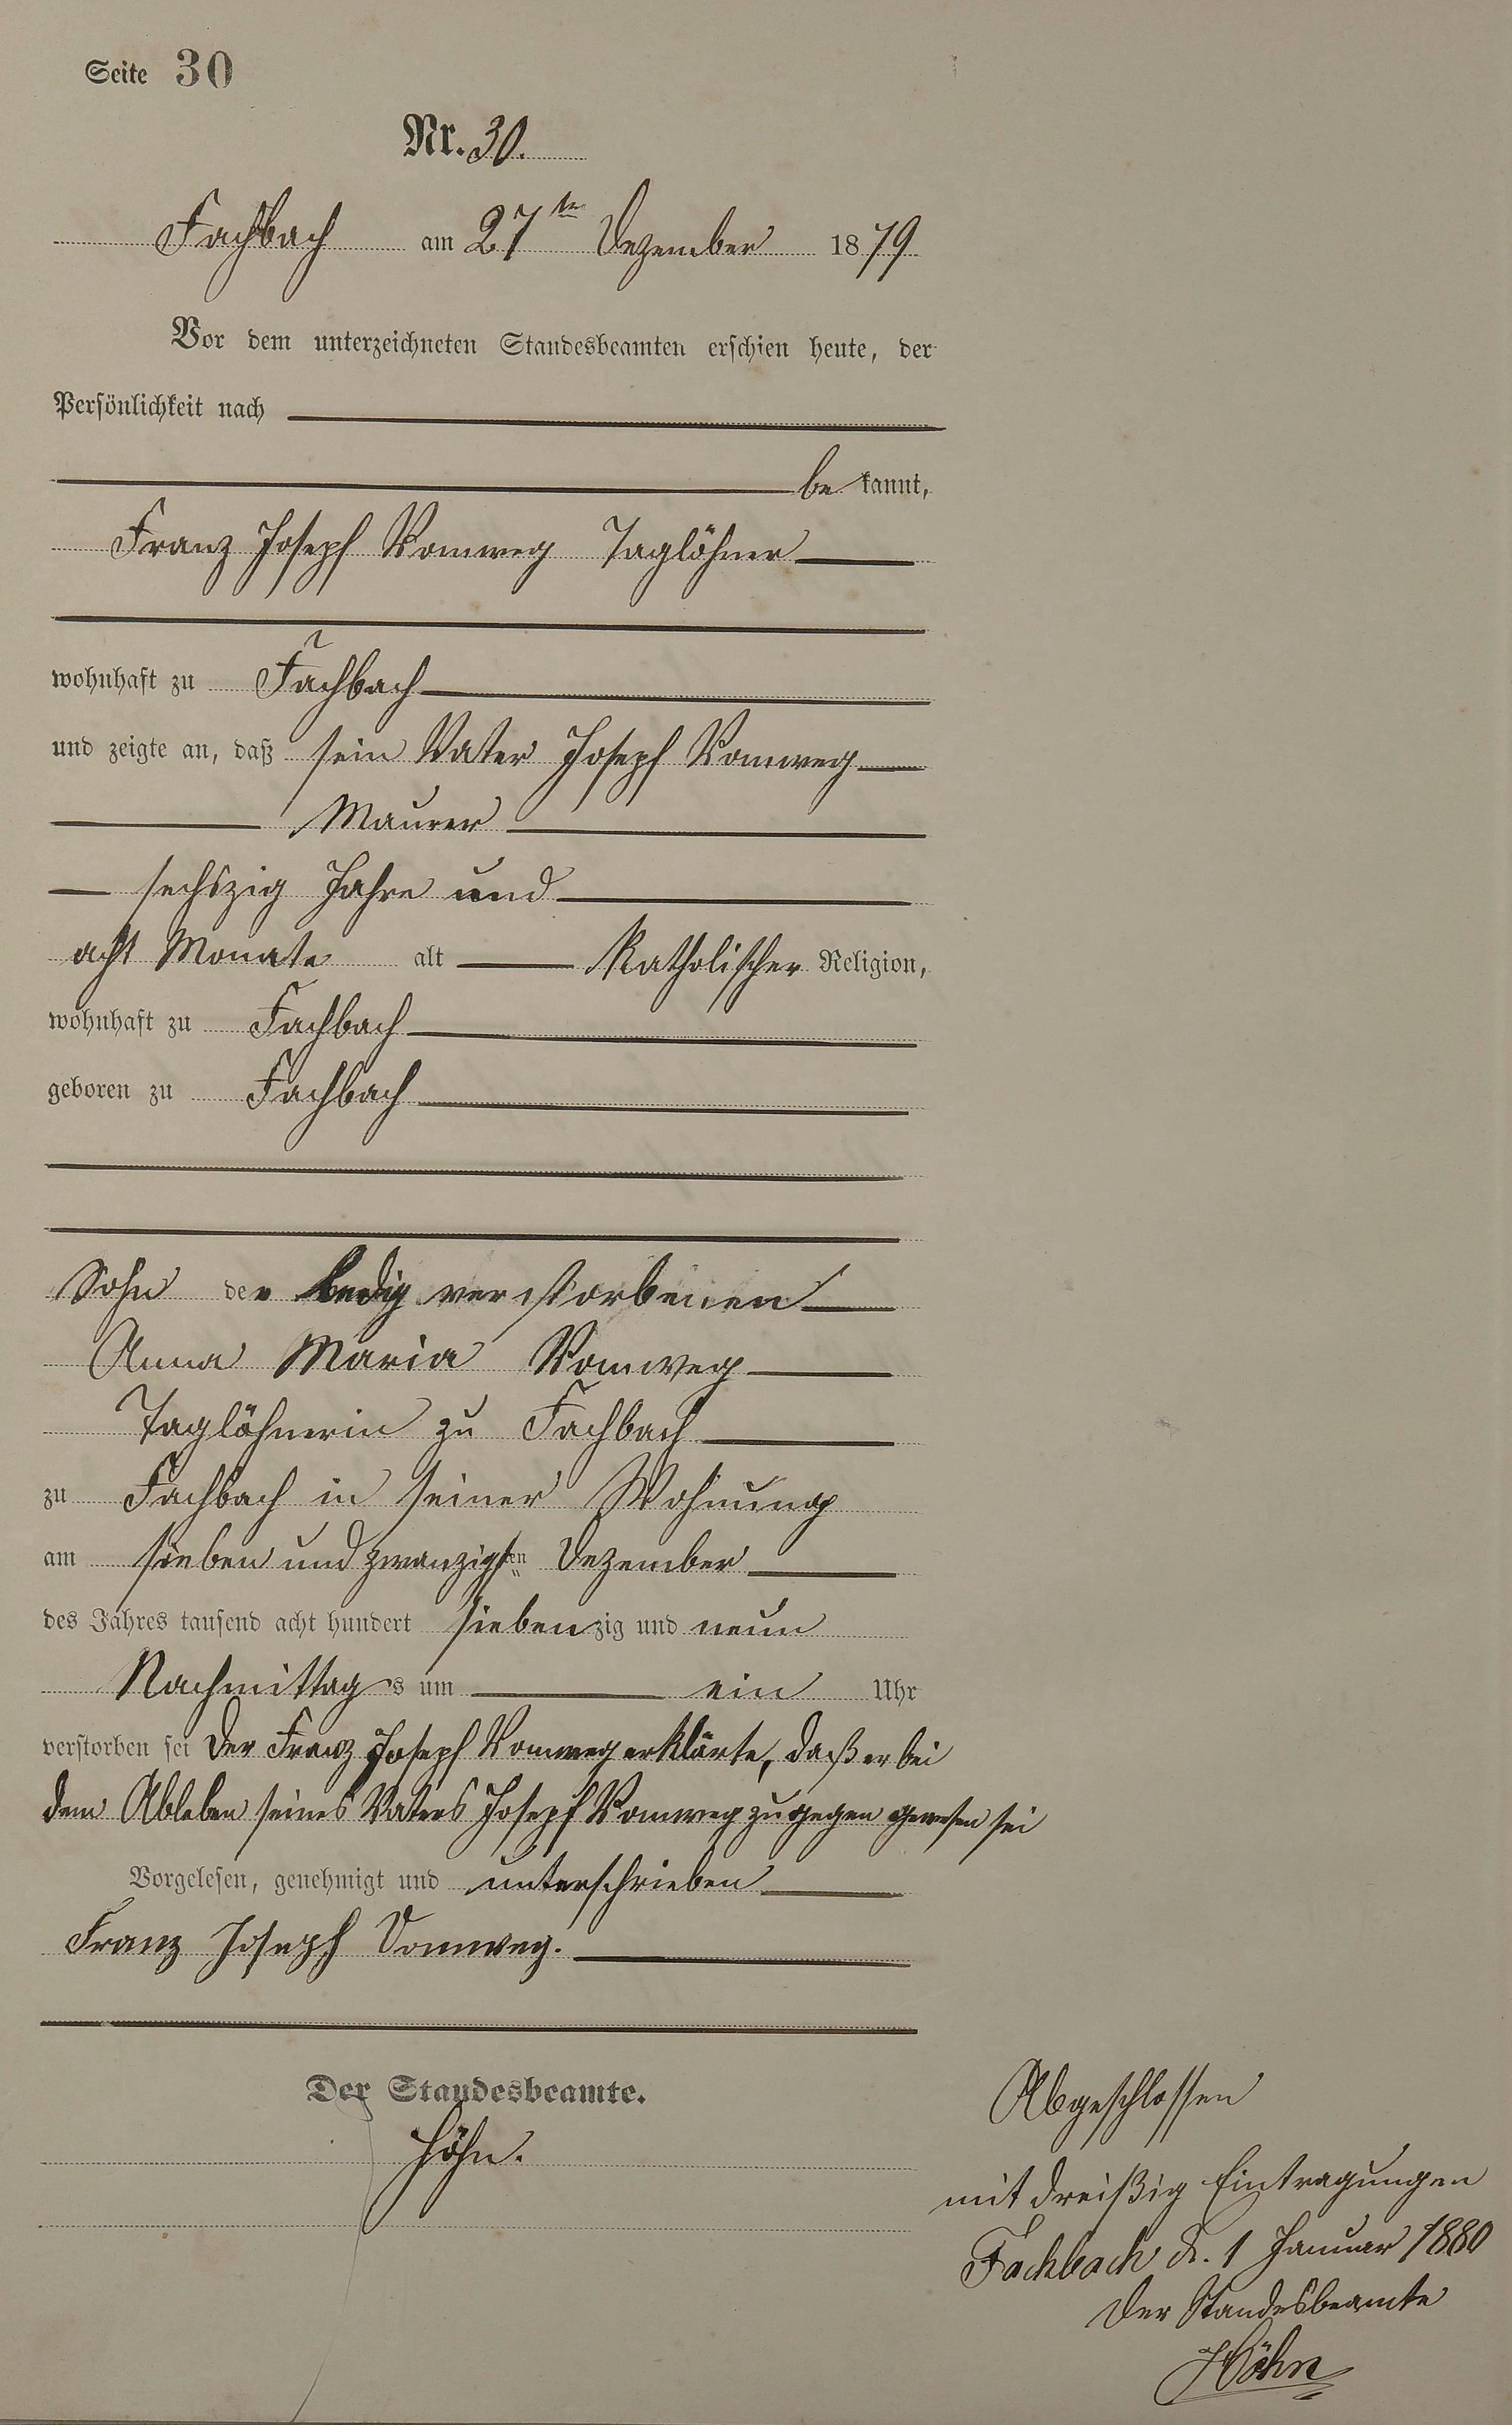 Seite 30
Nr. 30.
Fachbach am 27ten Dezember 1879
Vor dem unterzeichneten Standesbeamten erschien heute, der
Persönlichkeit nach
be kannt,
Franz Joseph Vomweg Taglöhner
wohnhaft zu Fachbach
und zeigte an, daß sein Vater Joseph Vomweg
Maurer
sechszig Jahre und
acht Monate alt Katholischer Religion,
wohnhaft zu Fachbach
geboren zu Fachbach
Sohn der ledig verstorbenen
Anna Maria Vomweg
Taglöhnerin zu Fachbach
zu Fachbach in seiner Wohnung
am sieben und zwanzigsten Dezember
des Jahres tausend acht hundert siebenzig und neun
Nachmittags um ein Uhr
verstorben sei Der Franz Joseph Vomweg erklärte, daß er bei
dem Ableben seines Vaters Joseph Vomweg zugegen gewesen sei
Vorgelesen, genehmigt und unterschrieben
Franz Joseph Vomweg.
Der Standesbeamte.
Höhn.
Abgeschlossen
mit dreißig Eintragungen
Fachbach d. 1 Januar 1880
Der Standesbeamte
Höhn